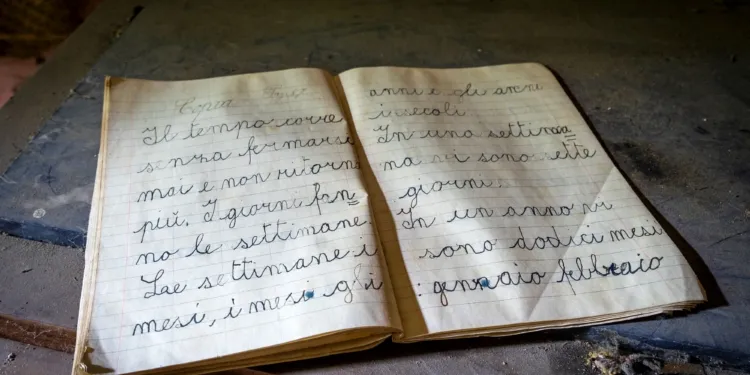 Copia
Il tempo corre
senza fermarsi
mai e non ritorna
più. I giorni fan
no le settimane.
Lae settimane i
mesi, i mesi gli
anni e gli anni
i secoli.
In una settima
na vi sono sette
giorni.
In un anno vi
sono dodici mesi
: gennaio febbraio